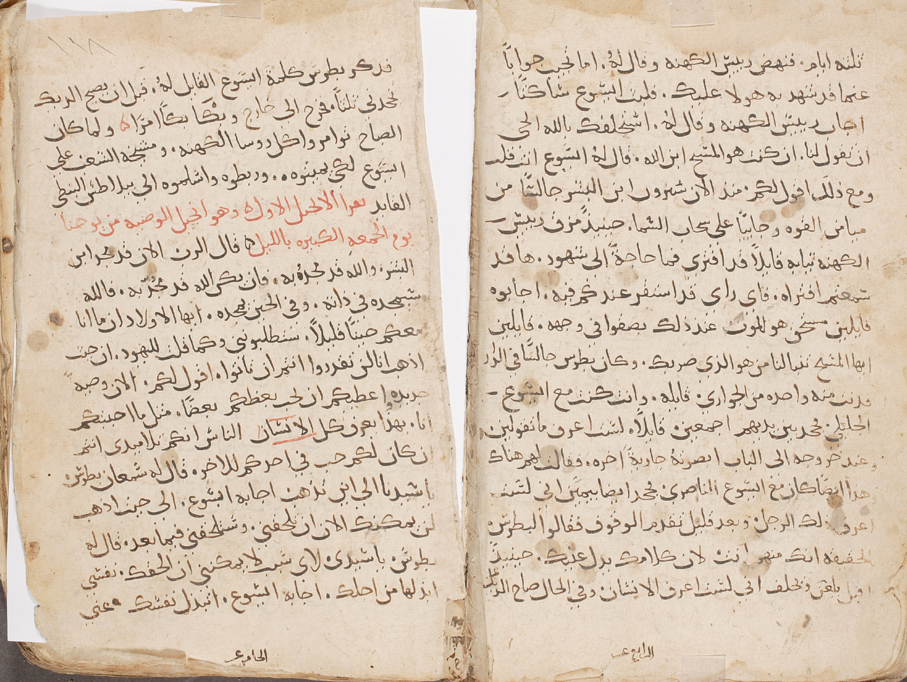 ثلثه ايام. فنهض رييس الكهنه وقال له. اما تجيب جواباً
عما قد شهد به هولا عليك. فلبث ايسوع ساكتاً
اجاب رييس الكهنه وقال له. استحلفك بالله الحي
ان تقول لنا. ان كنت هو المسيح ابن الله. قال له ايسوع انت قلت
ومع ذلك اقول لكم. منذ الان تبصرون ابن البشر جالساً من
ميامن القوه وجاياً على سحاب السما. حينيذ مزق رييس
الكهنه ثيابه قايلاً قد افترى فما حاجة الى شهود. ها قد
سمعتم افتراه. فاي راي قد استقر عندكم فيه. اجابوه
قايلين مستحق هو الموت عند ذلك بصقوا في وجهه. قايلين
ايها المسيح تنبا لنا من هو الذي ضربك. وكان بطرس جالساً في الدار
فدنت منه واحده من الجواري قايله. وانت كنت مع ايسوع
الجليلي. فجحد بين يديهم اجمعين قايلاً. لست اعرف ما تقولين
وعند خروجه الى الباب ابصرته جارية اخره. فقالت لهم هناك
هذا ايضا كان مع ايسوع الناصري. فجحد ايضا بيمين اني لست
اعرف ذلك الرجل. وبعد قليل تقدم الوقوف فقالو لبطرس
بالحقيقه انك منهم انت لان كلامك يدل عليك. حينيذ
اقبل يلعن ويحلف اني لست اعرف الانسان وفي الحال صاح الديك
الرابع عـ
١١٨
فذكر بطرس كلمة ايسوع القايل له. قبل ان يصيح الديك
تجحدني ثلثاً. فخرج الى خارج وبكا بكاً مراً ولما كان
الصباح توامروا كل روسا الكهنه. ومشيخة الشعب على
ايسوع لكي يميتوه. وربطوه واسلموه الى بيلاطس النبطي
القايد يقرا الانجيل الاول وهو انجيل الوصيه من يوحنا
يوم الجمعه الكبيره بالليل قال الرب الان قد مجد ابن
البشر. والله قد مجد به. فان يكن الله قد مجد به. فالله
سيمجده في ذاته. وفي الحين يمجده. ايها الاولاد ان ما انا
معكم حيناً قليلاً. ستطلبوني وكما قلت لليهود. ان حيث
اذهب انا لن تقدروا انتم ان تاتوا. اقول لكم. الان وصية
جديده اعطيكم ان يحب بعظكم بعظاً. مثل ما احببتكم
انا. بهذا يعرف كل الانسان الناس انكم تلاميدي انتم
ان كان لكم حب في احدكم للاخر. قال له سمعان بطرس
يا سيدنا الى اين تذهب اجابه ايسوع. الى حيث اذهب
لن يمكنك الان ان تلحقني. وستلحقني فيما بعد. قال له
بطرس. يا سيدي لاي سبب لا يمكنني ان الحقك. نفسي
ابذلها من اجلك. اجابه ايسوع. اتبدل نفسك عني
الخامس عـ